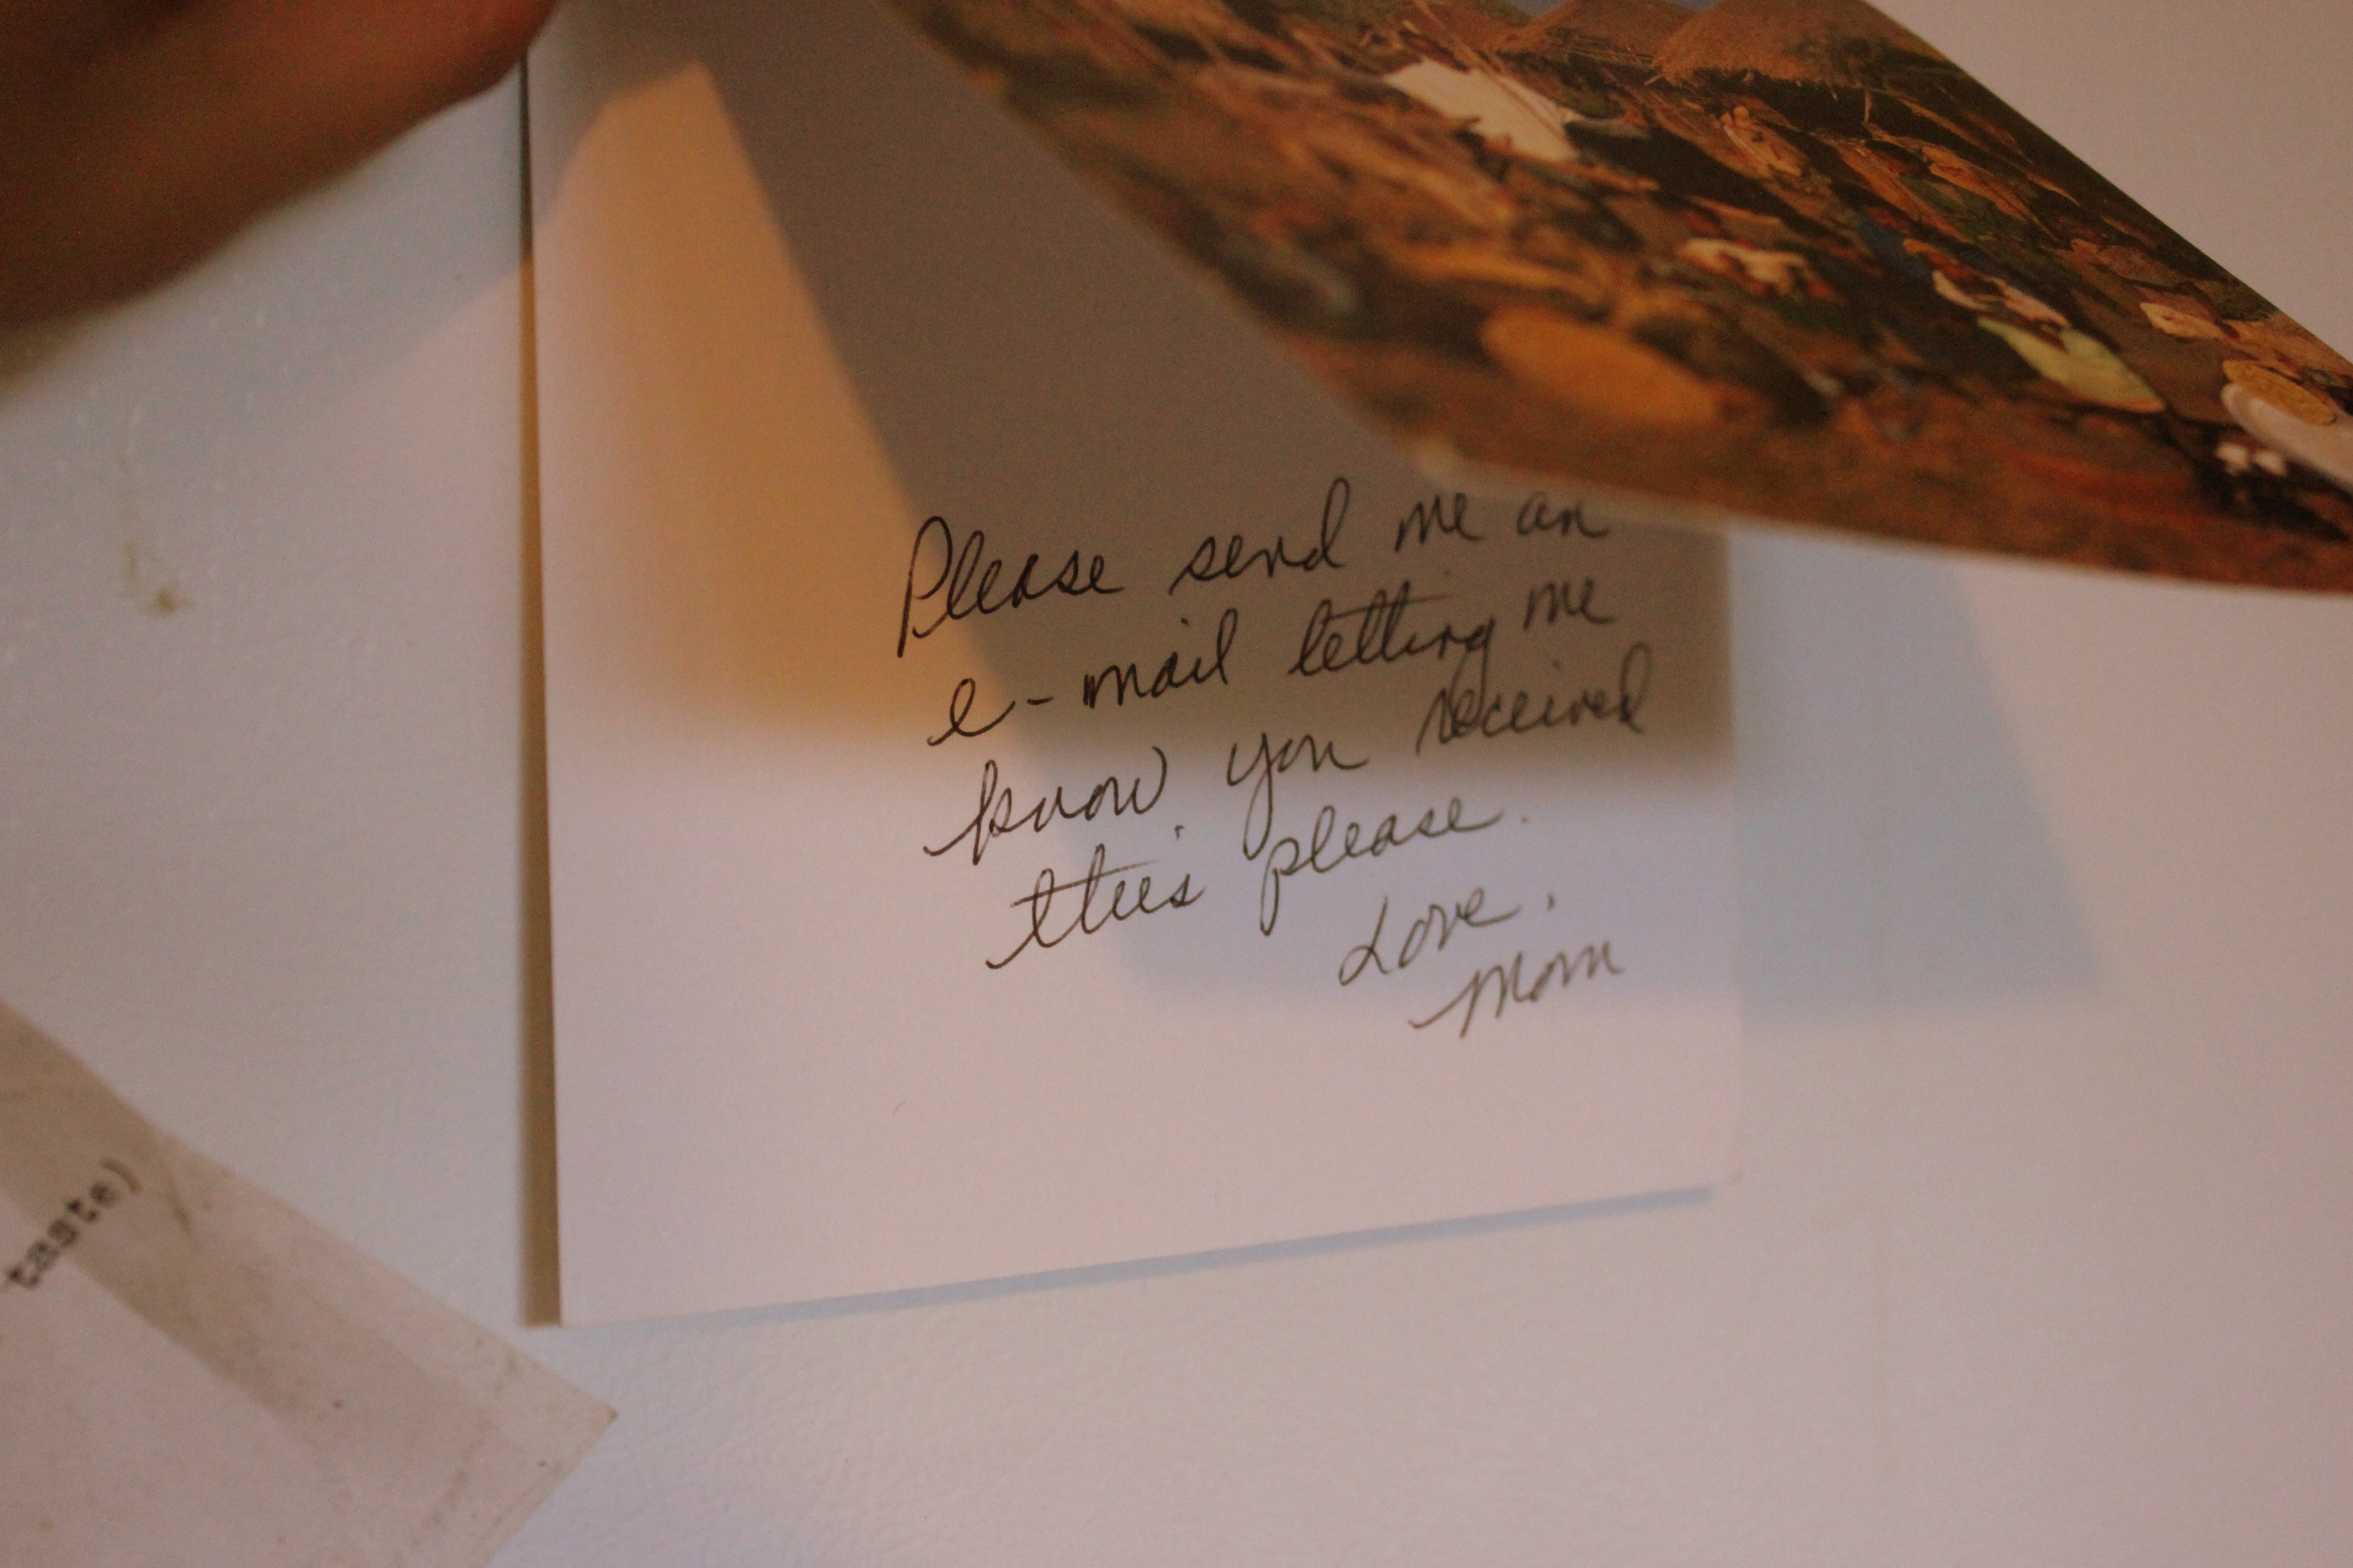 Please send me an
e-mail letting me
know you received
this please.
Love,
Mom
taste)